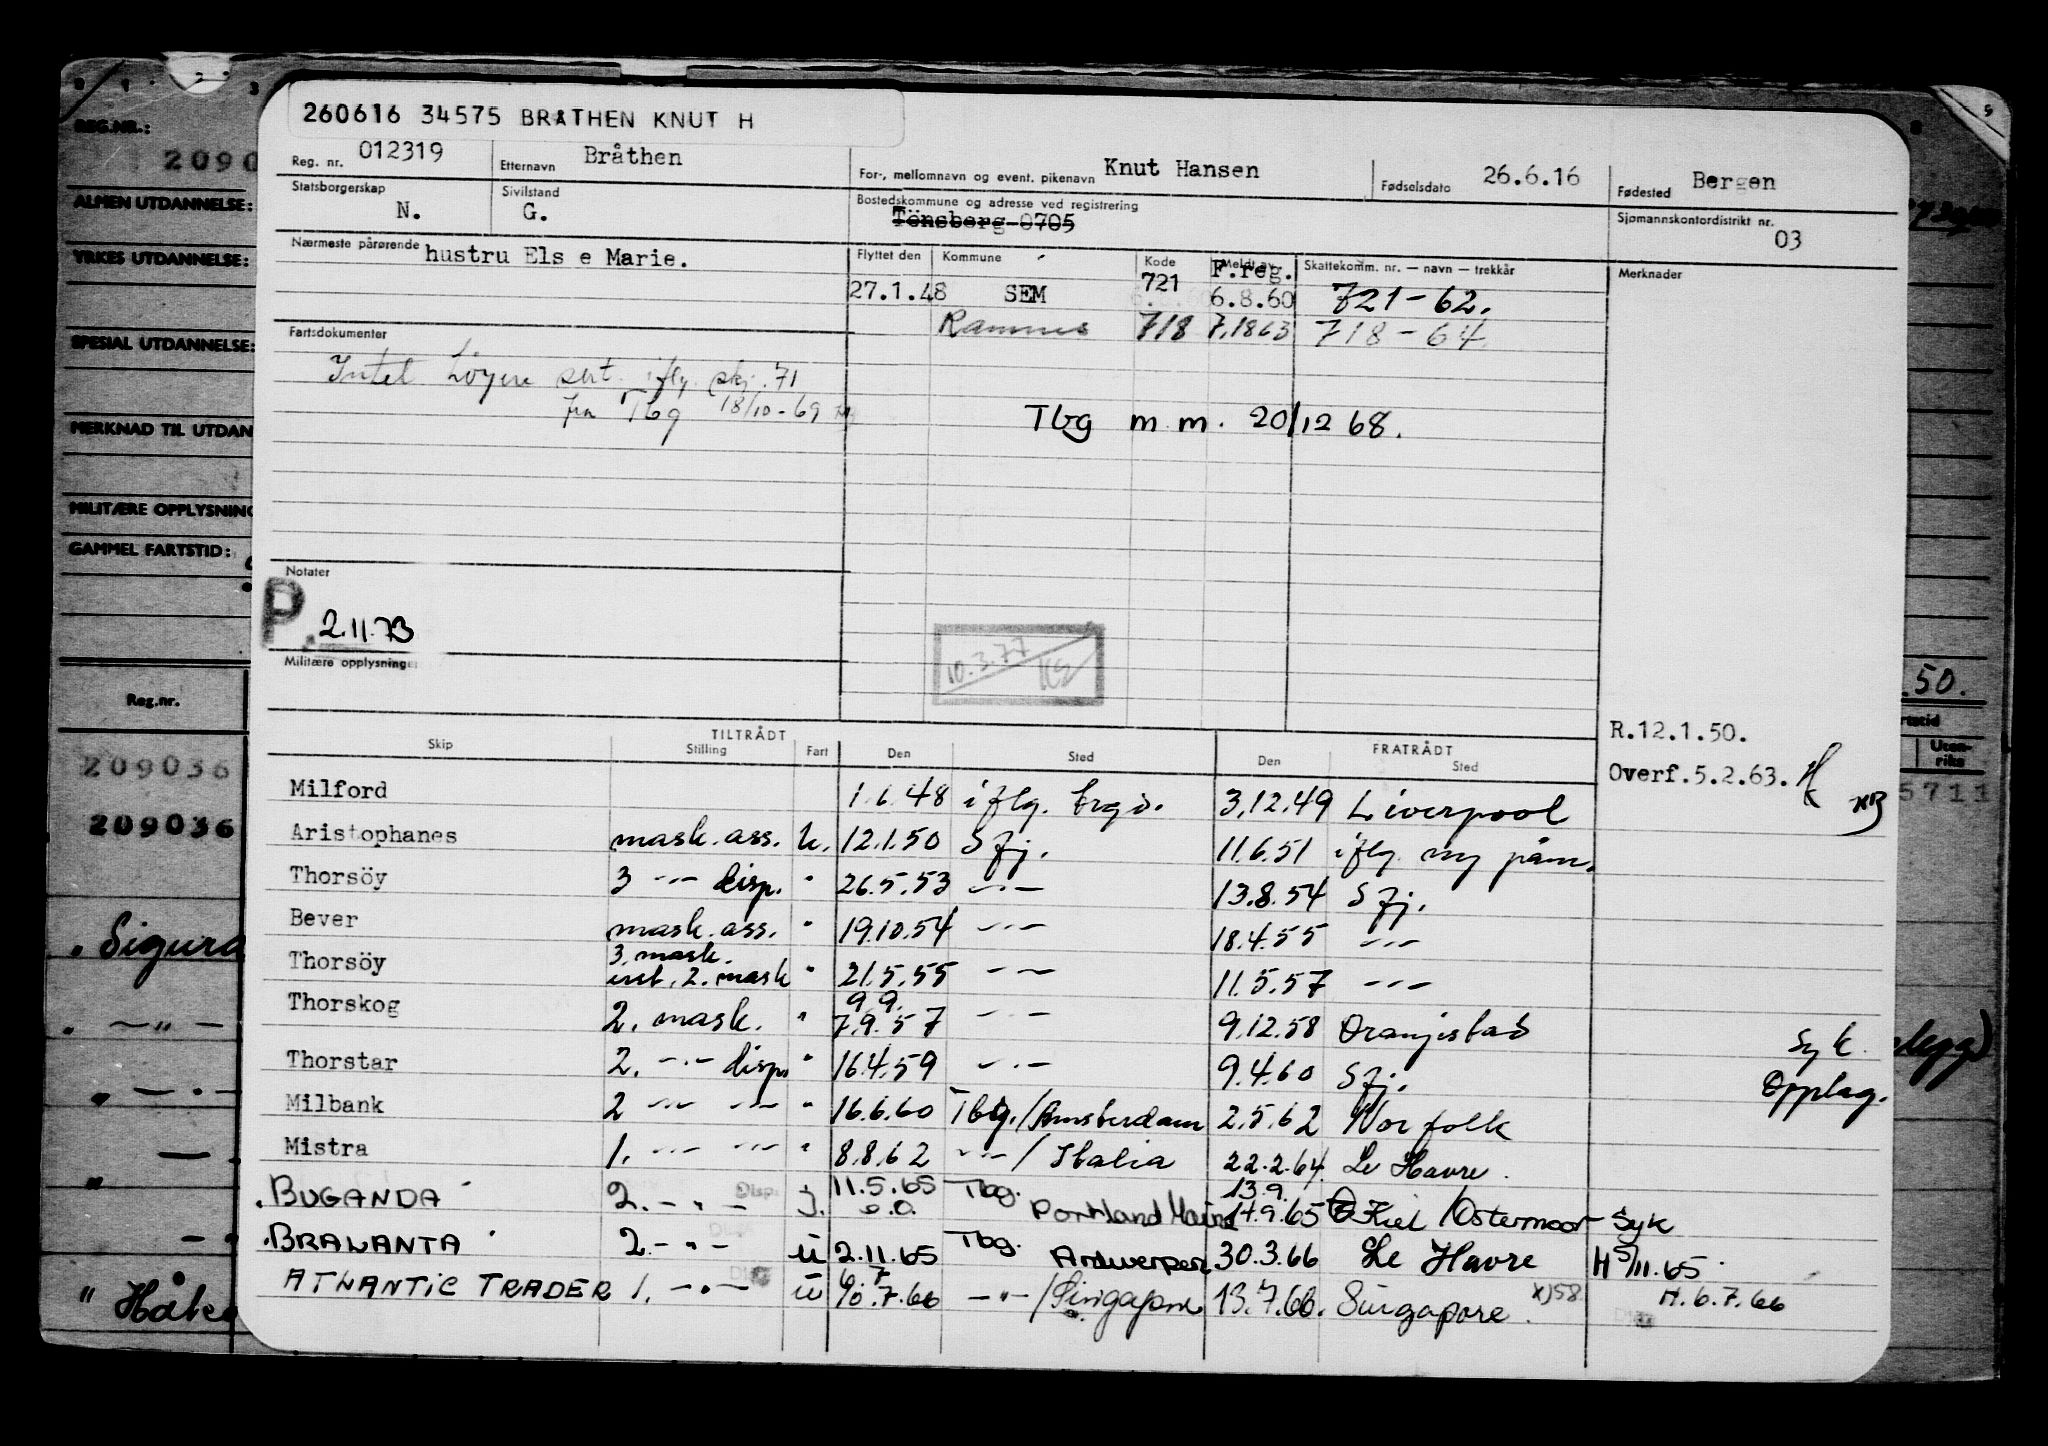 260616 34575 BRÅTHEN KNUT H
Reg. nr. 012319 Etternavn Bråthen For-, mellomnavn og event. pikenavn Knut Hansen Fødselsdato 26.6.16 Fødested Bergen
Statsborgerskap N. Sivilstand G. Bostedskommune og adresse ved registrering Tönsberg 0705 Sjømannskontordistrikt nr. 03
Nærmeste pårørende hustru Els e Marie. Flyttet den Kommune Kode Meldt av F.reg. Skattekomm. nr. — navn — trekkår Merknader
27.1.48 SEM 721 6.8.60 721-62.
Ramnes 718 7.1863 718-64.
Fartsdokumenter
Intet høyere sert. iflg. skj. 71
fra Tbg 18/10-69
Tbg m m. 20/12 68.
Notater
P. 2.11.73
10.3.77
Militære opplysninge
R.12.1.50.
Overf.5.2.63.
TILTRÅDT FRATRÅDT
Skip Stilling Fart Den Sted Den Sted
Milford 1.6.48 iflg. brgd. 3.12.49 Liverpool
Aristophanes mask. ass. u. 12.1.50 Sfj. 11.6.51 iflg. ny påm.
Thorsöy 3 -"- disp. " 26.5.53 -"- 13.8.54 Sfj.
Bever mask. ass. " 19.10.54 -"- 18.4.55 -"-
Thorsöy 3. mask. " 21.5.55 -"- 11.5.57 -"-
2. mask
Thorskog 2. mask. " 9.9. 7.9.57 -"- 9.12.58 Oranjestad Syk.
Thorstar 2. -"- disp. " 16.4.59 -"- 9.4.60 Sfj. Opplag.
Milbank 2 -"- -"- " 16.6.60 Tbg./Amsterdam 2.5.62 Norfolk
Mistra 1. -"- -"- " 8.8.62 -"- / Italia 22.2.64 Le Havre.
BUGANDA 2. -"- Disp. 11.5.65 Tbg. Portland Maine 13.9. 14.9.65 Kiel/Ostermoor Syk
BRALANTA 2. -"- u 2.11.65 Tbg. Antwerpen 30.3.66 Le Havre H 5/11.65
ATLANTIC TRADER 1. -"- u 7.66 -"- /Singapore 13.7.66. Singapore. x)58 H.6.7.66
REG.NR.:
2090
ALMEN UTDANNELSE:
YRKES UTDANNELSE:
SPESIAL UTDANNELSE:
MERKNAD TIL UTDAN
MILITÆRE OPPLYSNING
GAMMEL FARTSTID:
Reg.nr.
209036
209036
Sigurd
-"-
" Håko
50.
Uten-
riks
5711